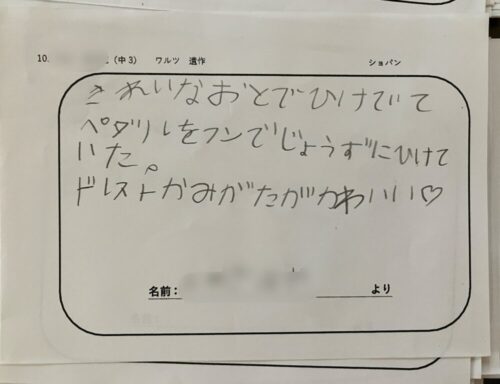 10. (中3) ワルツ 遺作 ショパン
きれいなおとでひけていて
ペダルをフンでじょうずにひけて
いた。
ドレスとかみがたがかわいい♡
名前: より